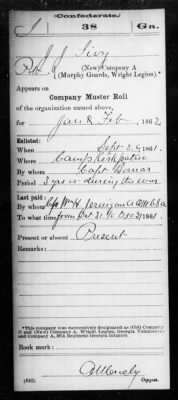 (Confederate.)
J 38 Ga.
J. J. Livy
Pvt, (New) Company A
(Murphy Guards, Wright Legion).*
Appears on
Company Muster Roll
of the organization named above,
for Jan & Feb, 1862.
Enlisted:
When Sept 26, 1861.
Where Camp Kirkpatrick
By whom Capt Bomar
Period 3 yrs or during the war
Last paid:
By whom
To what time from Oct 31 to Dec 31, 1861.
Present or absent Present
Remarks:
*This company was successively designated as (Old) Company
C and (New) Company A, Wright Legion, Georgia Volunteers
and Company A, 38th Regiment Georgia Infantry.
Book mark:
(642) Copyist.